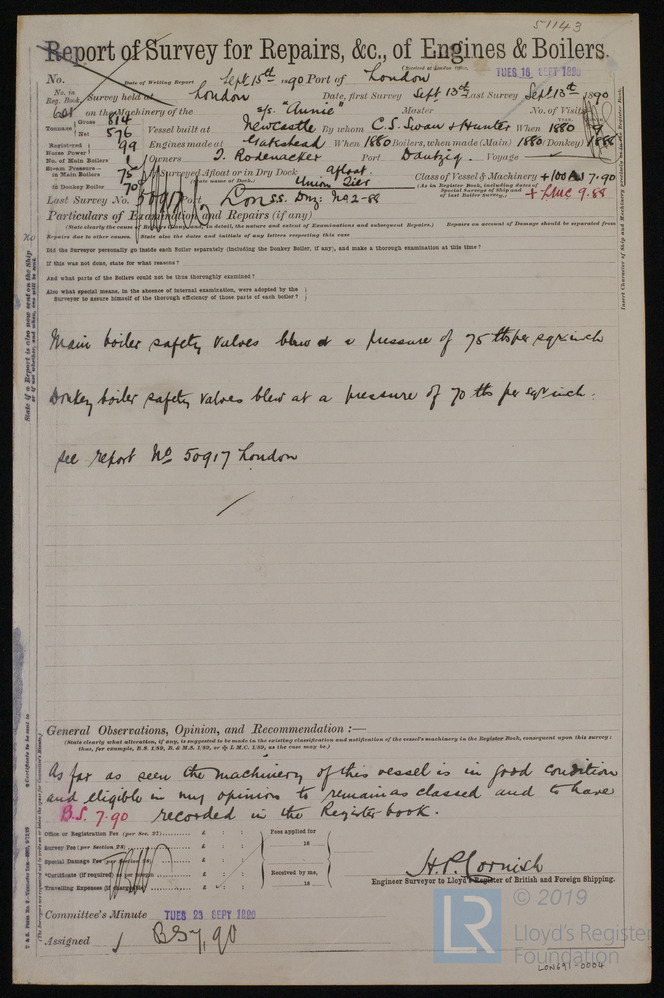 51143
Report of Survey for Repairs, &c., of Engines & Boilers.
(Received at London Office, TUES 16 SEPT 1890
No. Date of Writing Report Sept 15th 1890 Port of London
No. in Reg. Book. Survey held at London Date, first Survey Sept 13th Last Survey Sept 13th 1890
601 on the Machinery of the s/s. "Annie" Master No. of Visits
Tonnage Gross 814 Net 576 Vessel built at Newcastle By whom C. S. Swan & Hunter When 1880
Registered Horse Power 99 Engines made at Gateshead When 1880 Boilers, when made (Main) 1880 (Donkey) 1888
No. of Main Boilers 1 Owners T. Rodenacker Port Dantzig. Voyage
Steam Pressure in Main Boilers 75 If Surveyed Afloat or in Dry Dock afloat. Class of Vessel & Machinery +100A1 7.90
in Donkey Boiler 70 (State name of Dock.) Union Tier (As in Register Book, including dates of Special Surveys of Ship and of last Boiler Survey.) + LMC 9.88
Last Survey No. 50917 Port Lon SS. Dzg: No 2-88
Particulars of Examination and Repairs (if any)
(State clearly the cause of Repairs, if any, and, in detail, the nature and extent of Examinations and subsequent Repairs.) Repairs on account of Damage should be separated from
Repairs due to other causes. State also the dates and initials of any letters respecting this case
Did the Surveyor personally go inside each Boiler separately (including the Donkey Boiler, if any), and make a thorough examination at this time?
If this was not done, state for what reasons?
And what parts of the Boilers could not be thus thoroughly examined?
Also what special means, in the absence of internal examination, were adopted by the
Surveyor to assure himself of the thorough efficiency of those parts of each boiler?
Main boiler safety valves blew at a pressure of 75 lbs per sqr inch
Donkey boiler safety valves blew at a pressure of 70 lbs per sqr inch.
see report No 50917 London
General Observations, Opinion, and Recommendation :—
(State clearly what alteration, if any, is suggested to be made in the existing classification and notification of the vessel's machinery in the Register Book, consequent upon this survey:
thus, for example, B.S. 1/89, B. & M.S. 1/89, or L.M.C. 1/89, as the case may be.)
As far as seen the machinery of this vessel is in good condition
and eligible in my opinion to remain as classed and to have
B.S. 7.90 recorded in the Register book.
Office or Registration Fee (per Sec. 27) £ : : Fees applied for
Survey Fee (per Section 28) £ : : 18
Special Damage Fee (per Section 28) £ : :
*Certificate (if required) as per margin £ : : Received by me,
Travelling Expenses (if chargeable) £ : : 18
H. P. Cornish
Engineer Surveyor to Lloyd's Register of British and Foreign Shipping.
Committee's Minute TUES 23 SEPT 1890
Assigned BS 7,90
© 2019
LR
Lloyd's Register
Foundation
LON691-0004